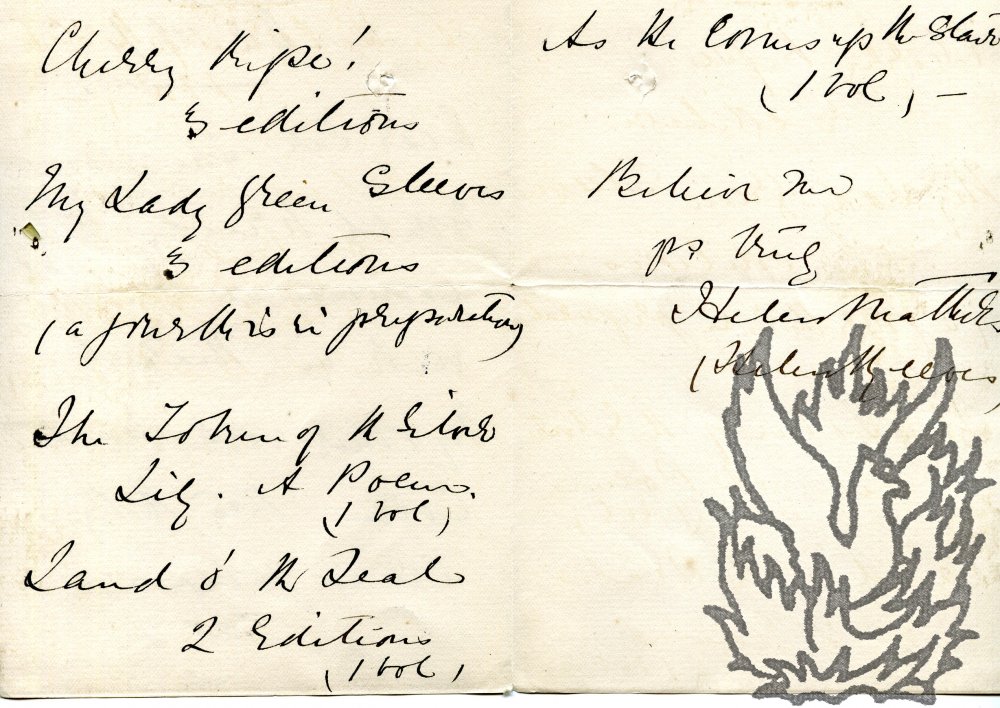 Cherry Ripe!
3 editions
My Lady Green Sleeves
3 editions
(a fourth is in preparation)
The Token of the Silver
Lily. A Poem.
(1 vol)
Land o' the Leal
2 Editions
(1 vol)
As He Comes up the Stair
(1 vol) —
Believe me
yrs truly
Helen Mathers
(Helen Reeves)